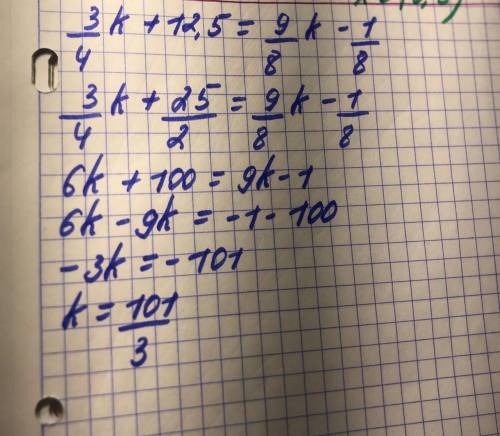 3/4 k + 12,5 = 9/8 k - 1/8
3/4 k + 25/2 = 9/8 k - 1/8
6k + 100 = 9k - 1
6k - 9k = -1 - 100
-3k = -101
k = 101/3